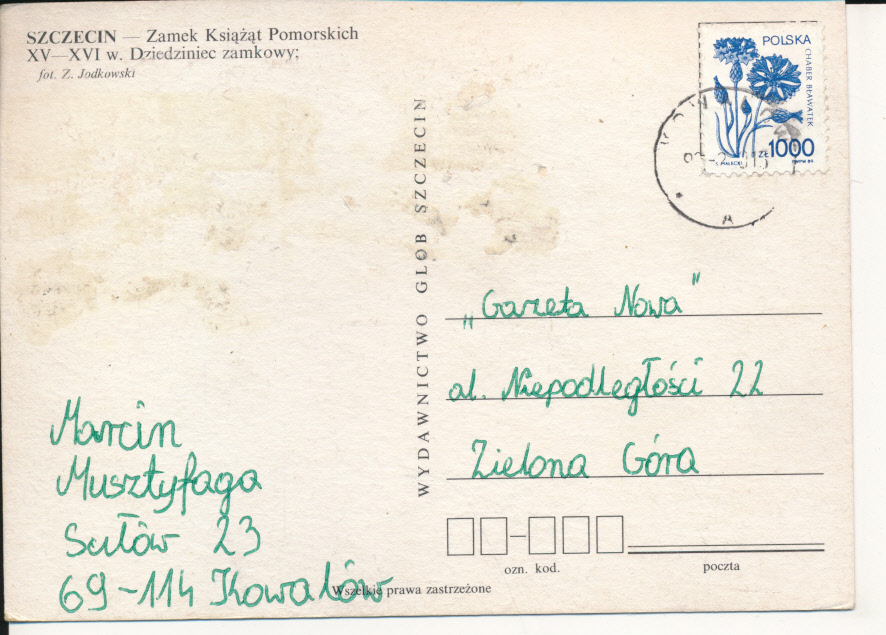 SZCZECIN — Zamek Książąt Pomorskich
XV—XVI w. Dziedziniec zamkowy;
fot. Z. Jodkowski
WYDAWNICTWO GLOB SZCZECIN
POLSKA
CHABER BŁAWATEK
ZŁ 1000
S. MAŁECKI
PWPW 89
A
„Gazeta Nowa”
al. Niepodległości 22
Zielona Góra
Marcin
Musztyfaga
Sułów 23
69-114 Kowalów
ozn. kod.
poczta
Wszelkie prawa zastrzeżone